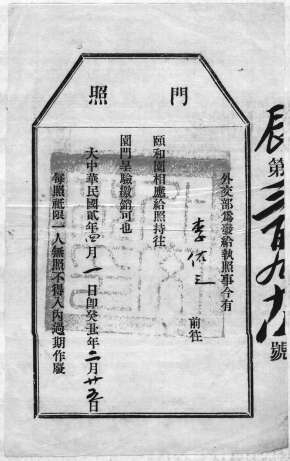 辰第三百九十號
門照
外交部為發給執照事今有
李三前往
頤和園相應給照持往
園門呈驗繳銷可也
大中華民國貳年四月一日即癸丑年二月廿五日
每照祇限一人無照不得入內過期作廢